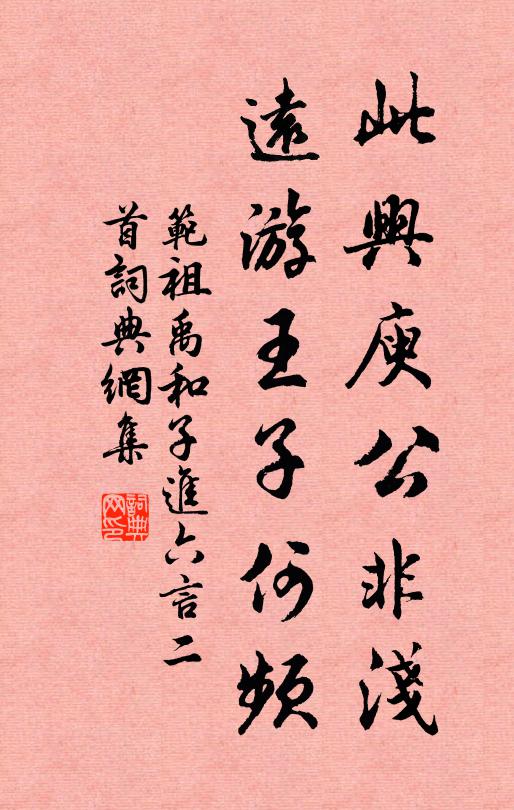 此興庾公非淺
遠游王子何頻
範祖禹和子進六言二
首詞典網集
詞典网印